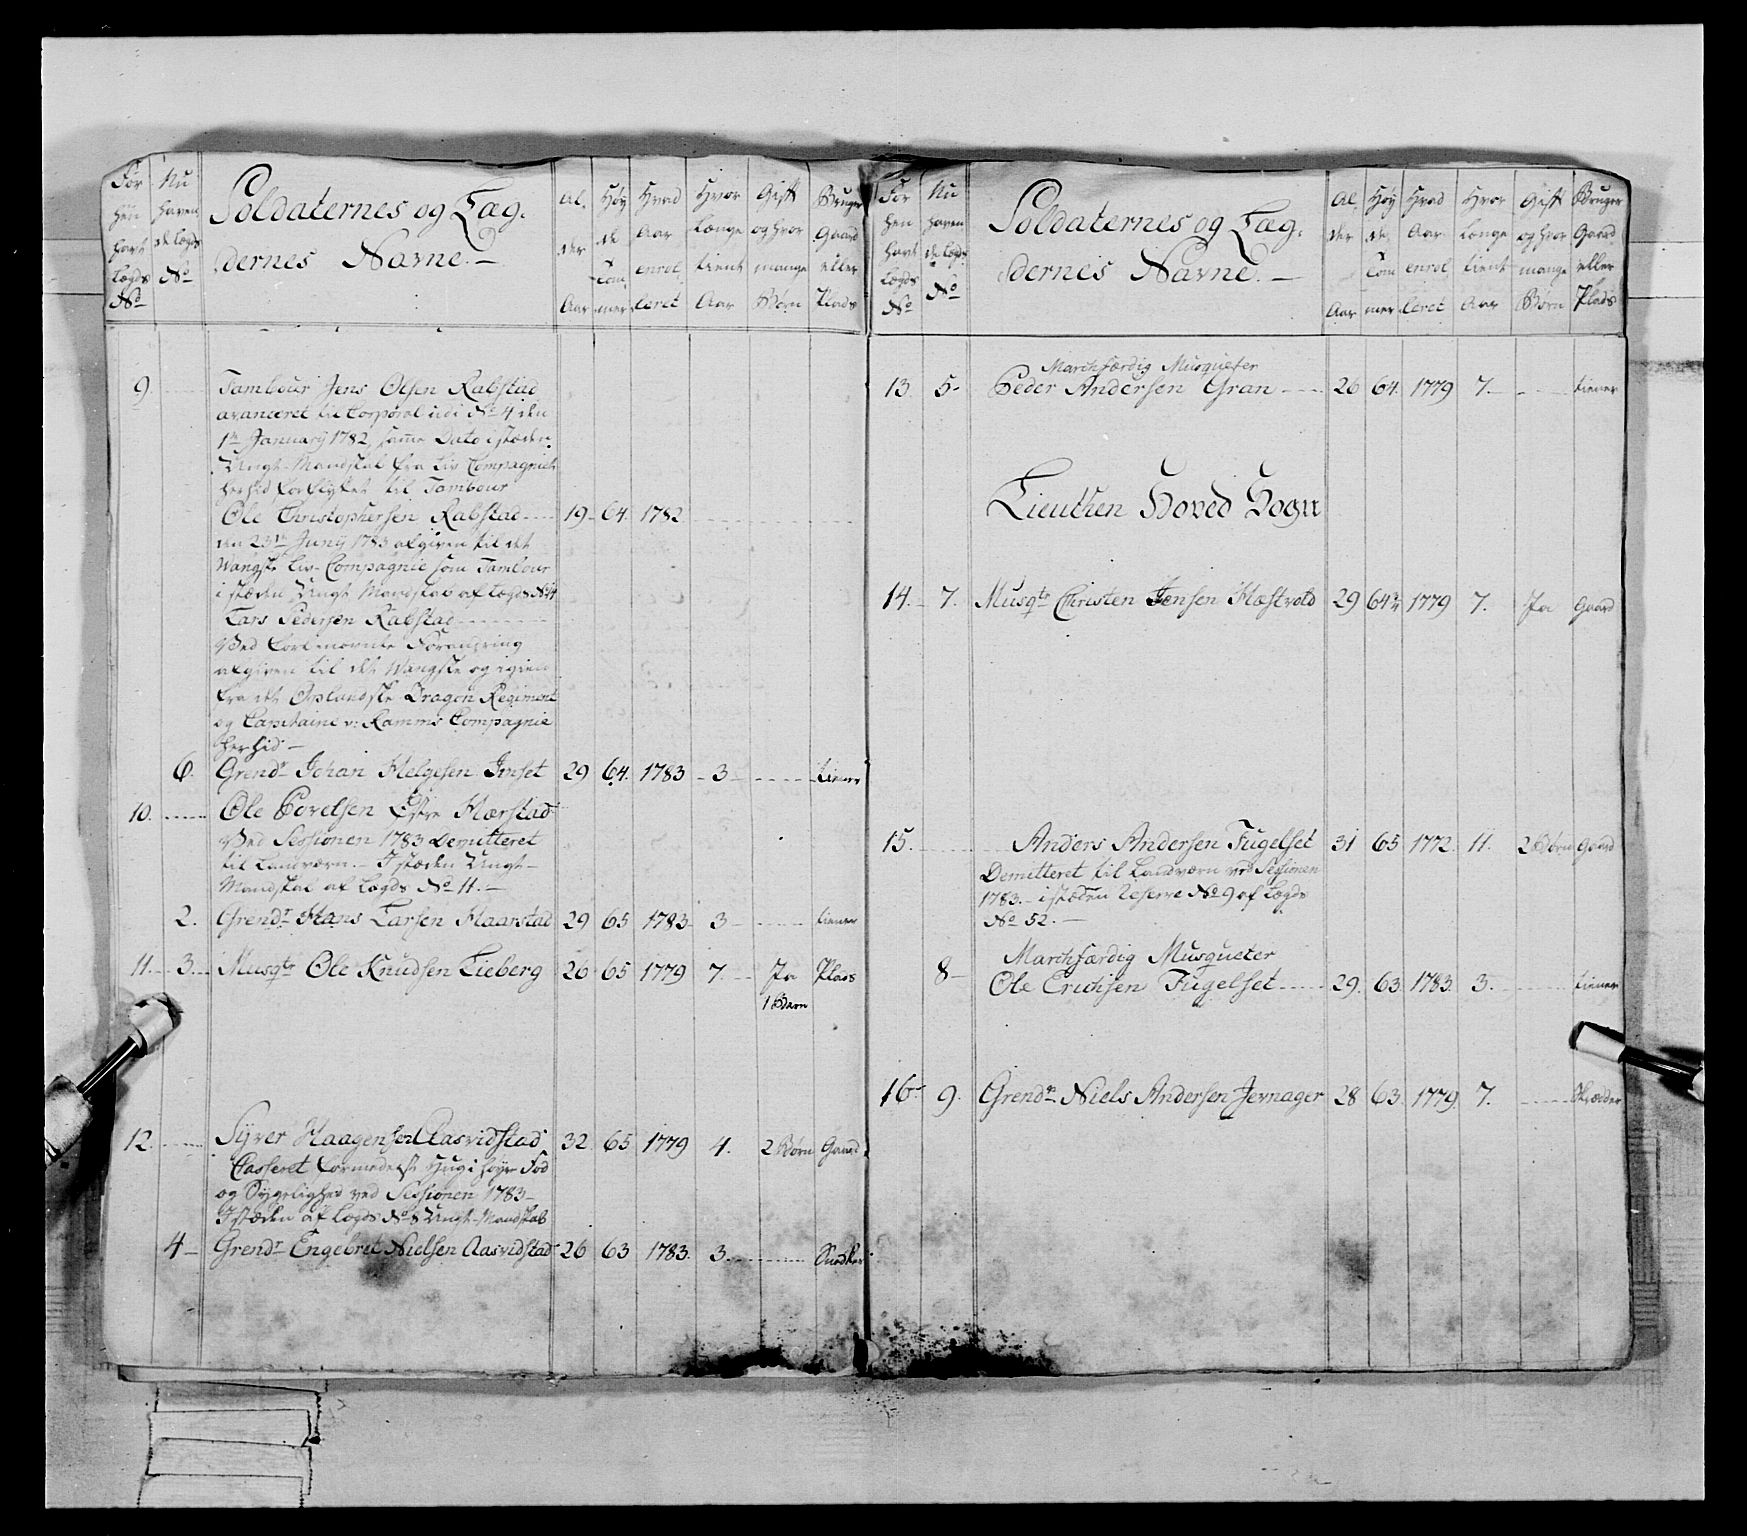 Før
hen
havt
Lægds
No
Nu
haven
de Lægds
No
Soldaternes og Læg-
dernes Navne.
Al-
der
Aar
Høy
de
Tom
mer
Hvad
Aar
enrol
leret
Hvor
Længe
tient
Aar
Gift
og hvor
mange
Børn
Bruger
Gaard
eller
Plads
9. Tambour Jens Olsen Rabstad
avanceret til Corporal udi No 4 den
1te January 1782, samme Dato i stæden
Ungt-Mandskab fra Liv Compagniet
herhid forflyttet til Tambour
Ole Christophersen Rabstad 19 64. 1782
den 23de Juny 1783 afgiven til det
Wangske Liv-Compagnie som Tambour
i stæden Ungt Mandskab af Lægds No 14
Lars Pedersen Rabstad
Ved forbenævnte Forandring
afgiven til det Wangske og igien
fra det Oplandske Dragon Regiment
og Capitaine v: Ramms Compagnie
herhid
6. Grendr Johan Helgesen Imset 29 64. 1783 3 tiener
10. Ole Povelsen Østre Harstad
Ved Sessionen 1783 Demitteret
til Landværn. I stæden Ungt-
Mandskab af Lægds No 11.
2. Grendr Hans Larsen Haarstad 29 65 1783 3 tiener
11. 3. Musqtr Ole Knudsen Lieberg 26 65 1779 7. Ja Plads
1 Barn
12. Syver Haagensen Aasvidstad 32 65 1779 4. 2 Børn Gaard
Casseret formedelst Hug i høyre Fod
og Sygelighed ved Sessionen 1783
I stæden af Lægds No 8 Ungt-Mandskab
4 Grendr Engebret Nielsen Aasvidstad 26 63 1783. 3. Snedker
Før
hen
havt
Lægds
No
Nu
haven
de Lægds
No
Soldaternes og Læg-
dernes Navne.
Al
der
Aar
Høy
de
Tom
mer
Hvad
Aar
enrol
leret
Hvor
Længe
tient
Aar
Gift
og hvor
mange
Børn
Bruger
Gaard
eller
Plads
Marchfærdig Musqueter
13. 5 Peder Andersen Gran 26 64. 1779 7. tiener
Lieuthen Hoved Sogn
14. 7. Musqtr Christen Jensen Hæstvold 29 64½ 1779 7. Ja Gaard
15. Anders Andersen Fugelset 31 65 1772 11. 2 Børn Gaard
Demitteret til Landværn ved Sessionen
1783. i stæden Reserve No 9 af Lægds
No 52.
Marchfærdig Musqueter
8 Ole Erichsen Fugelset 29. 63. 1783. 3. tiener
16. 9. Grendr Niels Andersen Jevnager 28 63. 1779. 7. Skrædder